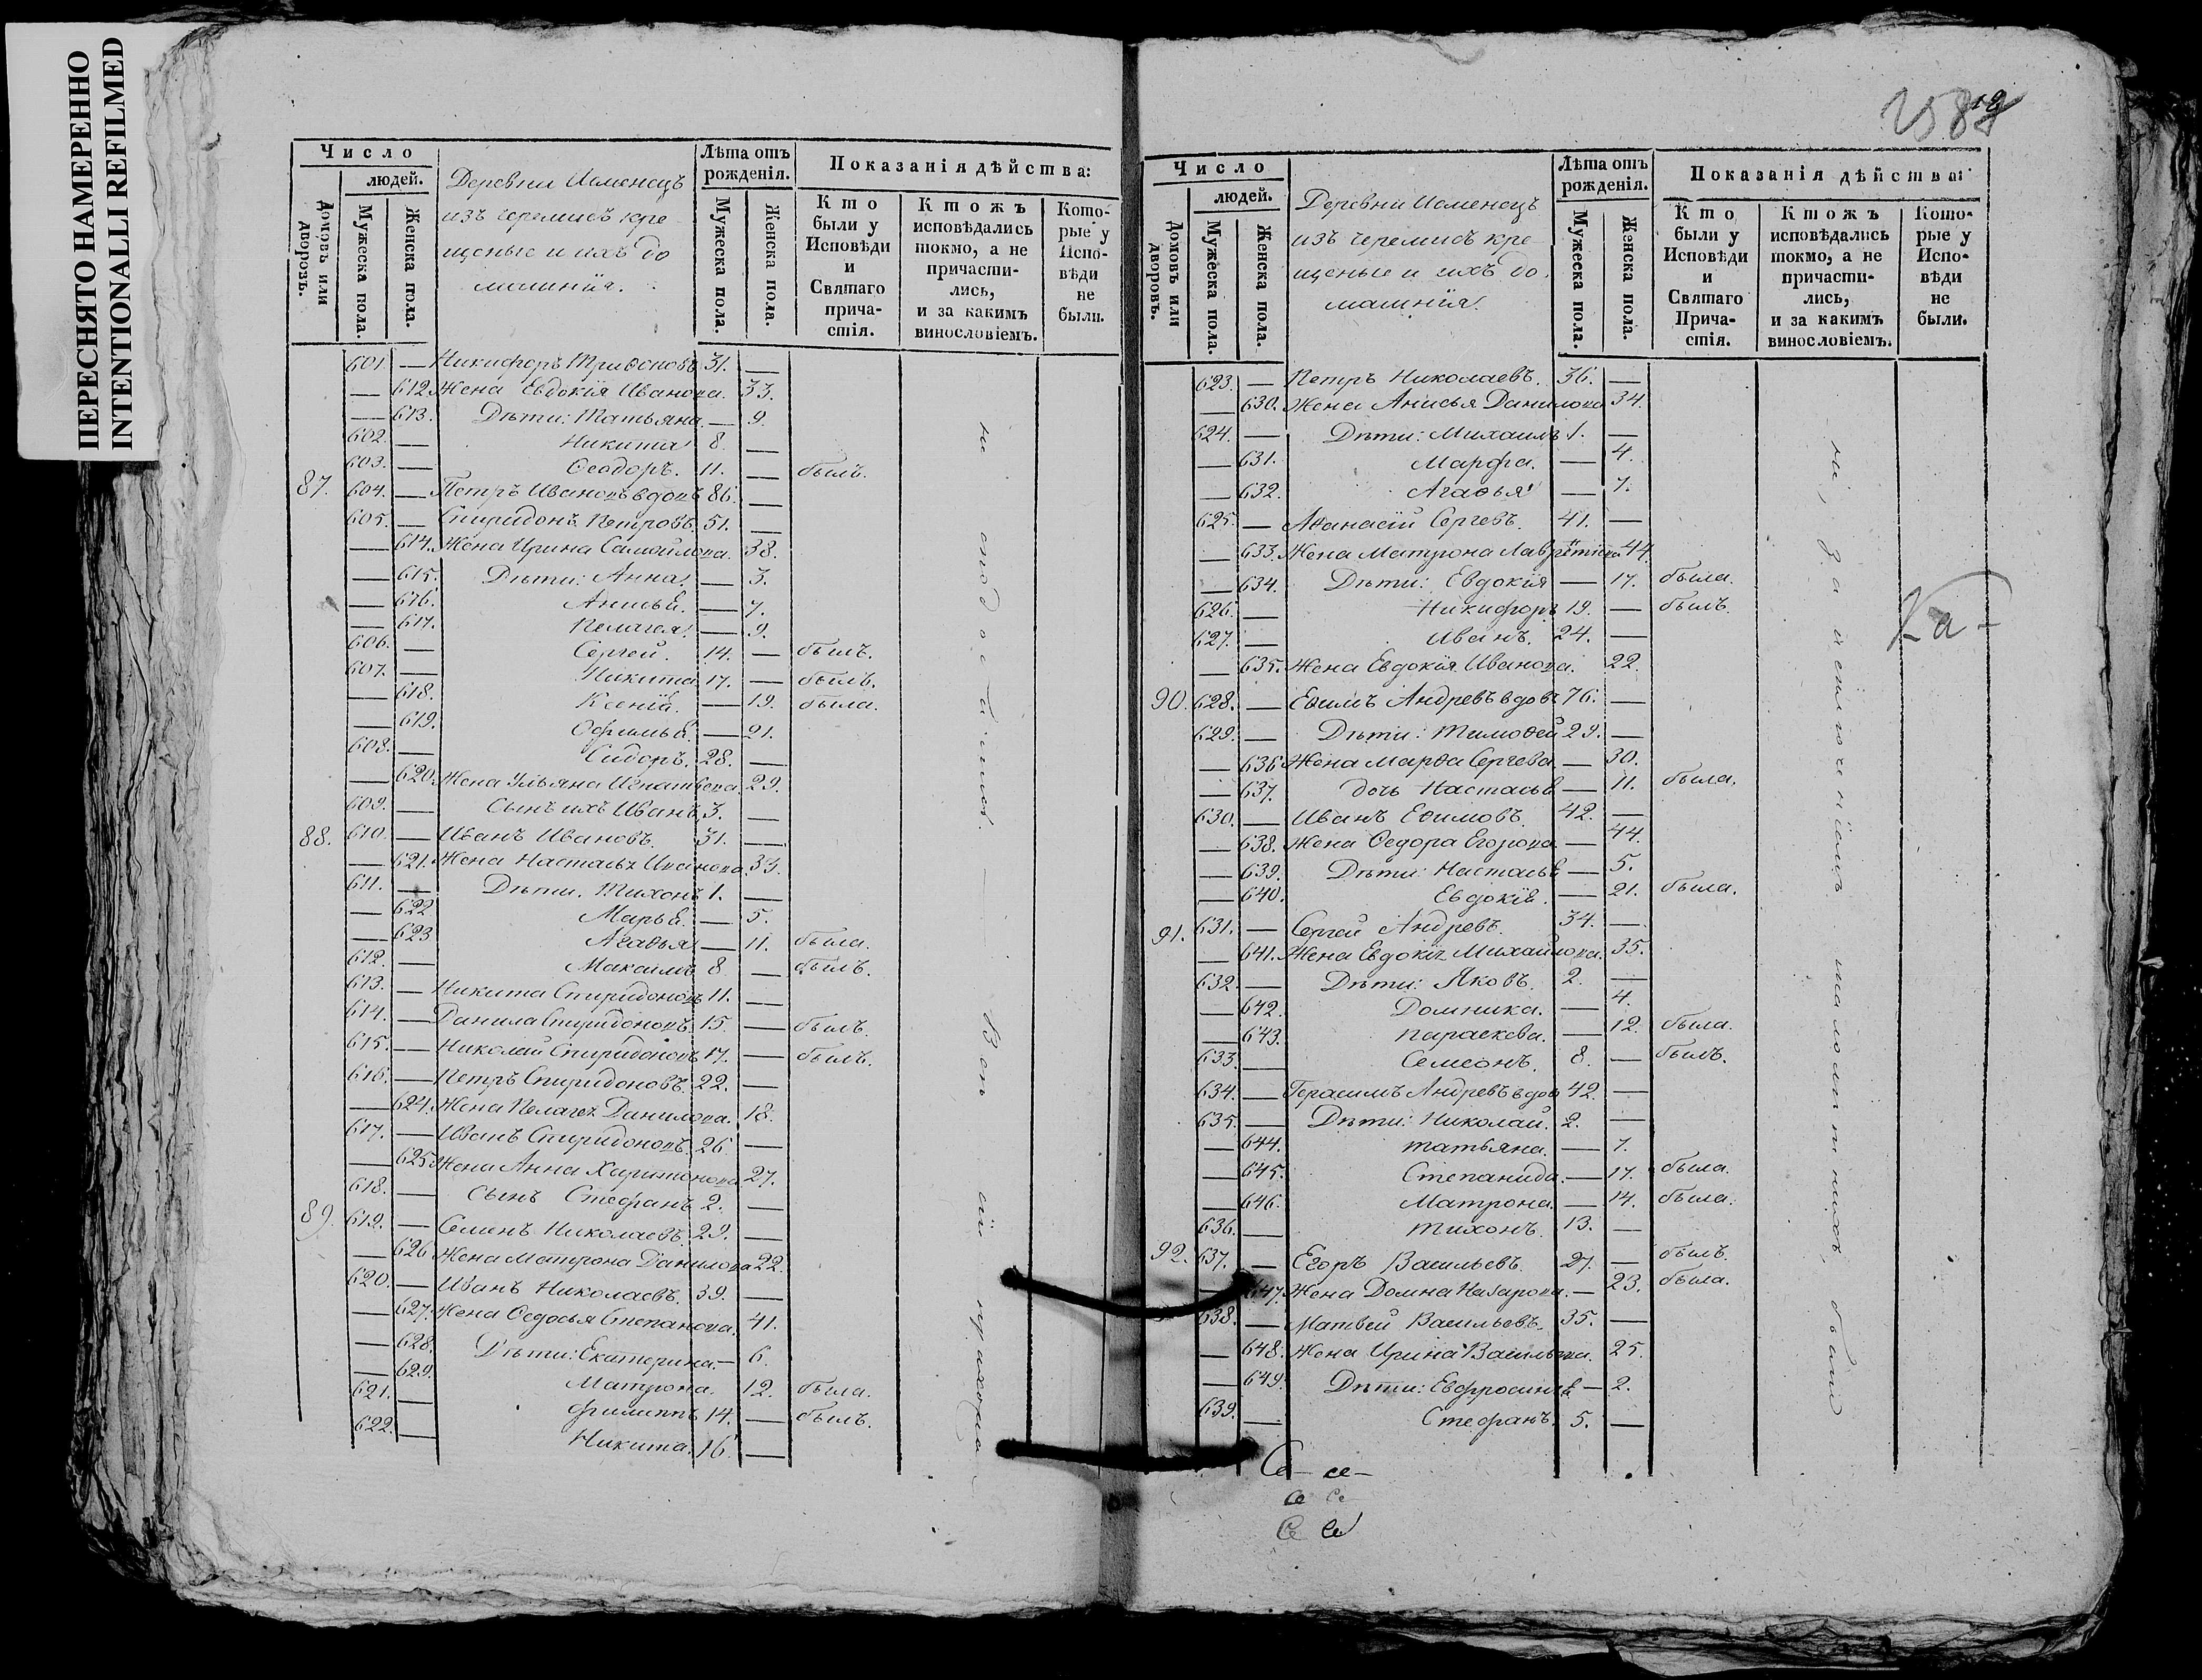 ПЕРЕСНЯТО НАМЕРЕННО
INTENTIONALLI REFILMED
Число
людей.
Домовъ или дворовъ.
Мужеска пола.
Женска пола.
Деревни Исменецъ
изъ черемисъ кре
щеные и ихъ до
машнія.
Лѣта отъ рожденія.
Мужеска пола.
Женска пола.
Показанія дѣйства:
Кто были у Исповѣди и Святаго прича- стія.
Ктожъ исповѣдались токмо, а не причасти- лись, и за какимъ винословіемъ.
Кото- рые у Испо- вѣди не были.
601. — Никифоръ Триѳоновъ 31. —
— 612. Жена Евдокія Иванова. 33.
— 613. Дѣти: Татьяна. — 9.
602. — Никита 8. —
603. — Ѳеодоръ. 11. — былъ.
87. 604. — Петръ Ивановъ вдовъ 86. —
605. — Спиридонъ Петровъ. 51. —
— 614. Жена Ирина Самойлова. 38.
— 615. Дѣти: Анна. — 3.
— 616. Анисья. — 7.
— 617. Пелагея. — 9.
606. — Сергей. 14. — былъ.
607. — Никита 17. — былъ.
— 618. Ксенія. — 19. была.
— 619. Офимья. — 21.
608. — Сидоръ. 28. —
— 620. Жена Ульяна Игнатьева. 29.
609. — Сынъ ихъ Иванъ. 3. —
88. 610. — Иванъ Ивановъ. 31. —
— 621. Жена Настасья Иванова. 33.
611. — Дѣти. Тихонъ 1. —
— 622 Марья. — 5.
— 623 Агаѳья — 11. была.
612. — Макаимъ 8. — былъ.
613. — Никита Спиридоновъ 11. —
614. — Данила Спиридоновъ. 15. — былъ.
615. — Николай Спиридоновъ 17. — былъ.
616. — Петръ Спиридоновъ. 22. —
— 624. Жена Пелагея Данилова. 18.
617. — Иванъ Спиридоновъ. 26. —
— 625. Жена Анна Харитонова 27.
618. — Сынъ Стефанъ 2. —
89. 619. — Семенъ Николаевъ. 29. —
— 626 Жена Матрона Данилова 22.
620. — Иванъ Николаевъ. 39. —
— 627. Жена Ѳедосья Степанова. 41.
— 628. Дѣти: Екатерина. — 6.
— 629. Матрона. 12. была.
621. — Филиппъ 14. — былъ.
622. — Никита. 16. —
Число
людей.
Домовъ или дворовъ.
Мужеска пола.
Женска пола.
Деревни Исменецъ
изъ черемисъ кре
щеные и ихъ до
машнія.
Лѣта отъ рожденія.
Мужеска пола.
Женска пола.
Показанія дѣйства:
Кто были у Исповѣди и Святаго Прича- стія.
Ктожъ исповѣдались токмо, а не причасти- лись, и за какимъ винословіемъ.
Кото- рые у Испо- вѣди не были.
623. — Петръ Николаевъ. 36. —
— 630. Жена Анисья Данилова 34.
624. — Дѣти: Михаилъ 1. —
— 631. Марфа. — 4.
— 632. Агаѳья — 7.
625. — Аѳанасій Сергевъ. 41. —
— 633. Жена Матрона 44
— 634. Дѣти: Евдокія — 17. была.
626. — Никифоръ 19. — былъ.
627. — Иванъ. 24. —
— 635. Жена Евдокія Иванова. 22.
90. 628. — Еѳимъ Андревъ вдовъ 76. —
629. — Дѣти: Тимоѳей 29. —
— 636 Жена Марѳа Сергева — 30.
— 637. дочь Настасья — 11. была.
630. — Иванъ Еѳимовъ. 42. —
— 638. Жена Ѳедора Егорова — 44.
— 639. Дѣти: Настасья — 5.
— 640. Евдокія. — 21. была.
91. 631. — Сергей Андревъ. 34. —
— 641. Жена Евдокія Михайлова. 35.
632. — Дѣти: Яковъ. 2. —
— 642. Домника. — 4.
— 643. Параскева. — 12. была.
633. — Семеонъ. 8. — былъ.
634. — Герасимъ Андревъ вдов 42. —
635. — Дѣти: Николай. 2. —
— 644. Татьяна. — 7.
— 645. Степанида. — 17. была.
— 646. Матрона. — 14. была.
636. — Тихонъ. 13. —
92. 637. — Егоръ Васильевъ. 27. — былъ.
— 647. Жена Домна Назарова. — 23. была.
638. — Матвей Васильевъ. 35. —
— 648. Жена Ирина Васильева. 25.
— 649. Дѣти: Евфросинья — 2.
639. — Стефанъ. 5. —
Ка-
Се- се-
се Се
Се Се